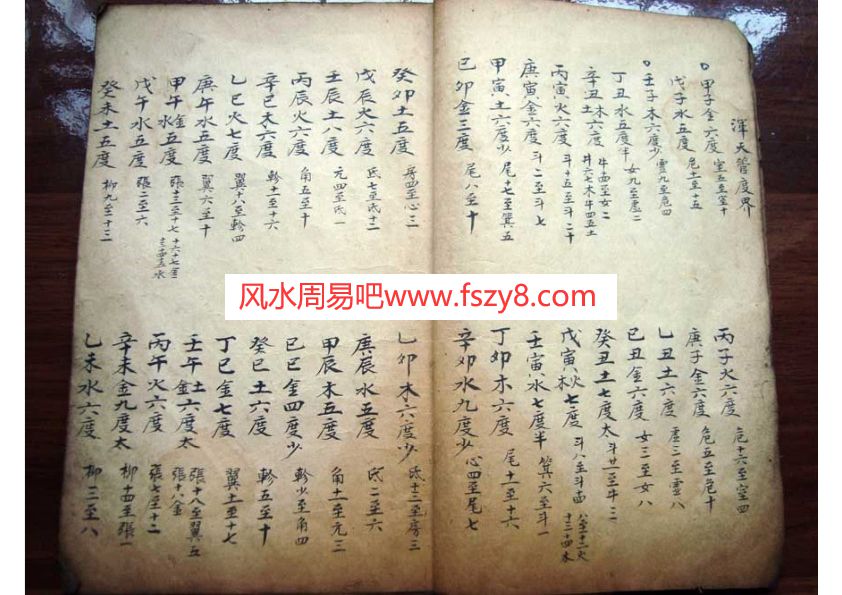 渾天管度界
甲子金六度 室五至室十
丙子火六度 危十六至室四
戊子水五度 危十一至十五
庚子金六度 危五至危十
壬子木六度少 虛九至危四
乙丑土六度 虛三至虛八
丁丑水五度半 女九至虛二
己丑金六度 女三至女八
辛丑木土六度 牛四至女二 斗六七木牛四五土
癸丑土七度太 斗廿一至牛三
丙寅火六度 斗十五至斗二十
戊寅火木七度 斗八至斗 八至十二火 十三十四木
庚寅金六度 斗二至斗七
壬寅水七度半 箕六至斗一
甲寅土六度少 尾十七至箕五
丁卯木六度 尾十一至十六
己卯金三度 尾八至十
辛卯水九度少 心四至尾七
癸卯土五度 房四至心三
乙卯木六度少 氐十三至房三
戊辰火六度 氐七至氐十二
庚辰水五度 氐二至六
壬辰土八度 亢四至氐一
甲辰木五度 角十一至亢三
丙辰火六度 角五至十
己巳金四度少 軫少至角四
辛巳木六度 軫十一至十六
癸巳土六度 軫五至十
乙巳火七度 翼十八至軫四
丁巳金七度 翼十一至十七
庚午水五度 翼六至十
壬午土金六度太 張十八至翼五 張十八金
甲午金水五度 張十三至十七 十六十七金
丙午火六度 張七至十二
戊午水五度 張二至六
辛未金九度太 柳十四至張一
癸未土五度 柳九至十三
乙未水六度 柳三至八
风水周易吧www.fszy8.com